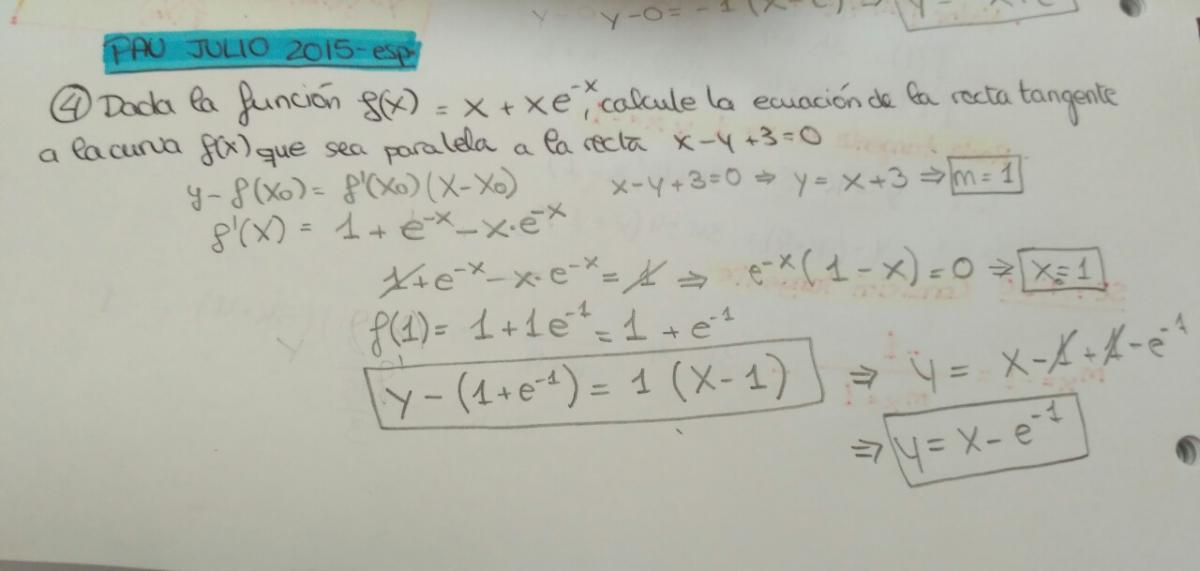 y-0 = -1(x-
PAU JULIO 2015-esp.
④ Dada la función f(x) = x + xe^{-x}, calcule la ecuación de la recta tangente
a la curva f(x) que sea paralela a la recta x-y+3=0
y-f(x₀) = f'(x₀)(x-x₀) x-y+3=0 ⇒ y = x+3 ⇒ m=1
f'(x) = 1 + e^{-x} - x·e^{-x}
1+e^{-x} - x·e^{-x} = 1 ⇒ e^{-x}(1-x) = 0 ⇒ x=1
f(1) = 1+1e^{-1} = 1 + e^{-1}
y-(1+e^{-1}) = 1 (x-1) ⇒ y = x-1+1-e^{-1}
⇒ y = x-e^{-1}